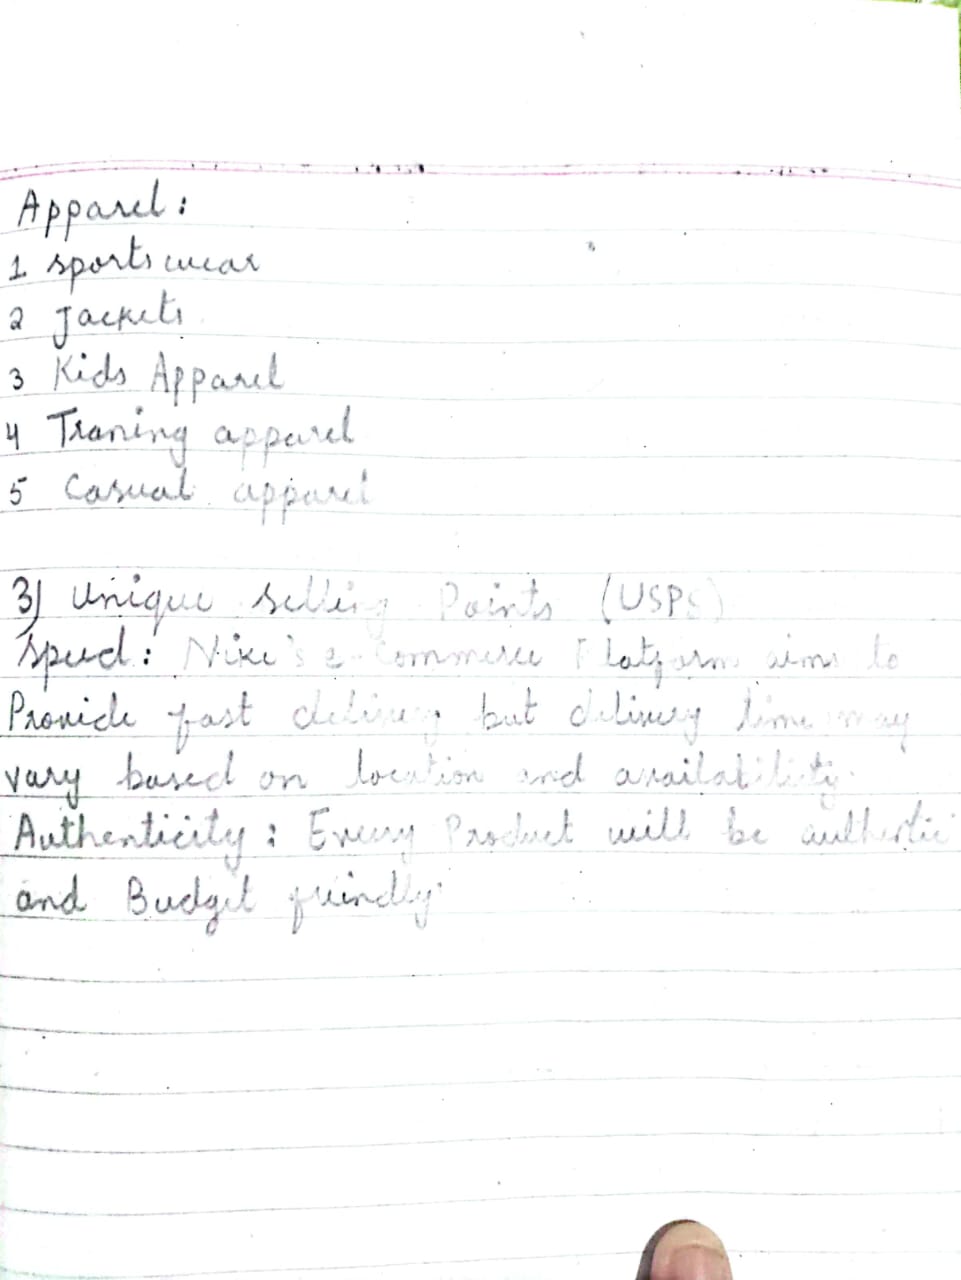 Apparel:
1 sportswear
2 Jackets
3 Kids Apparel
4 Traning apparel
5 Casual apparel
3) Unique Selling Points (USPs)
Speed: Nike's e-commerce Platform aims to
Provide fast delivery but delivery time may
vary based on location and availability.
Authenticity: Every Product will be authentic
and Budget friendly.